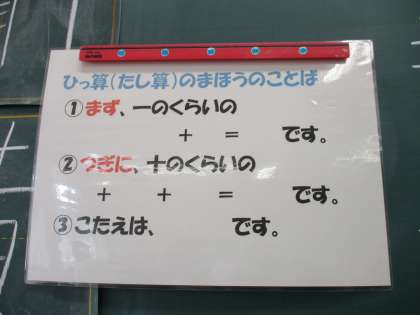 ひっ算(たし算)のまほうのことば
①まず、一のくらいの
＋　＝　です。
②つぎに、十のくらいの
＋　＋　＝　です。
③こたえは、　です。